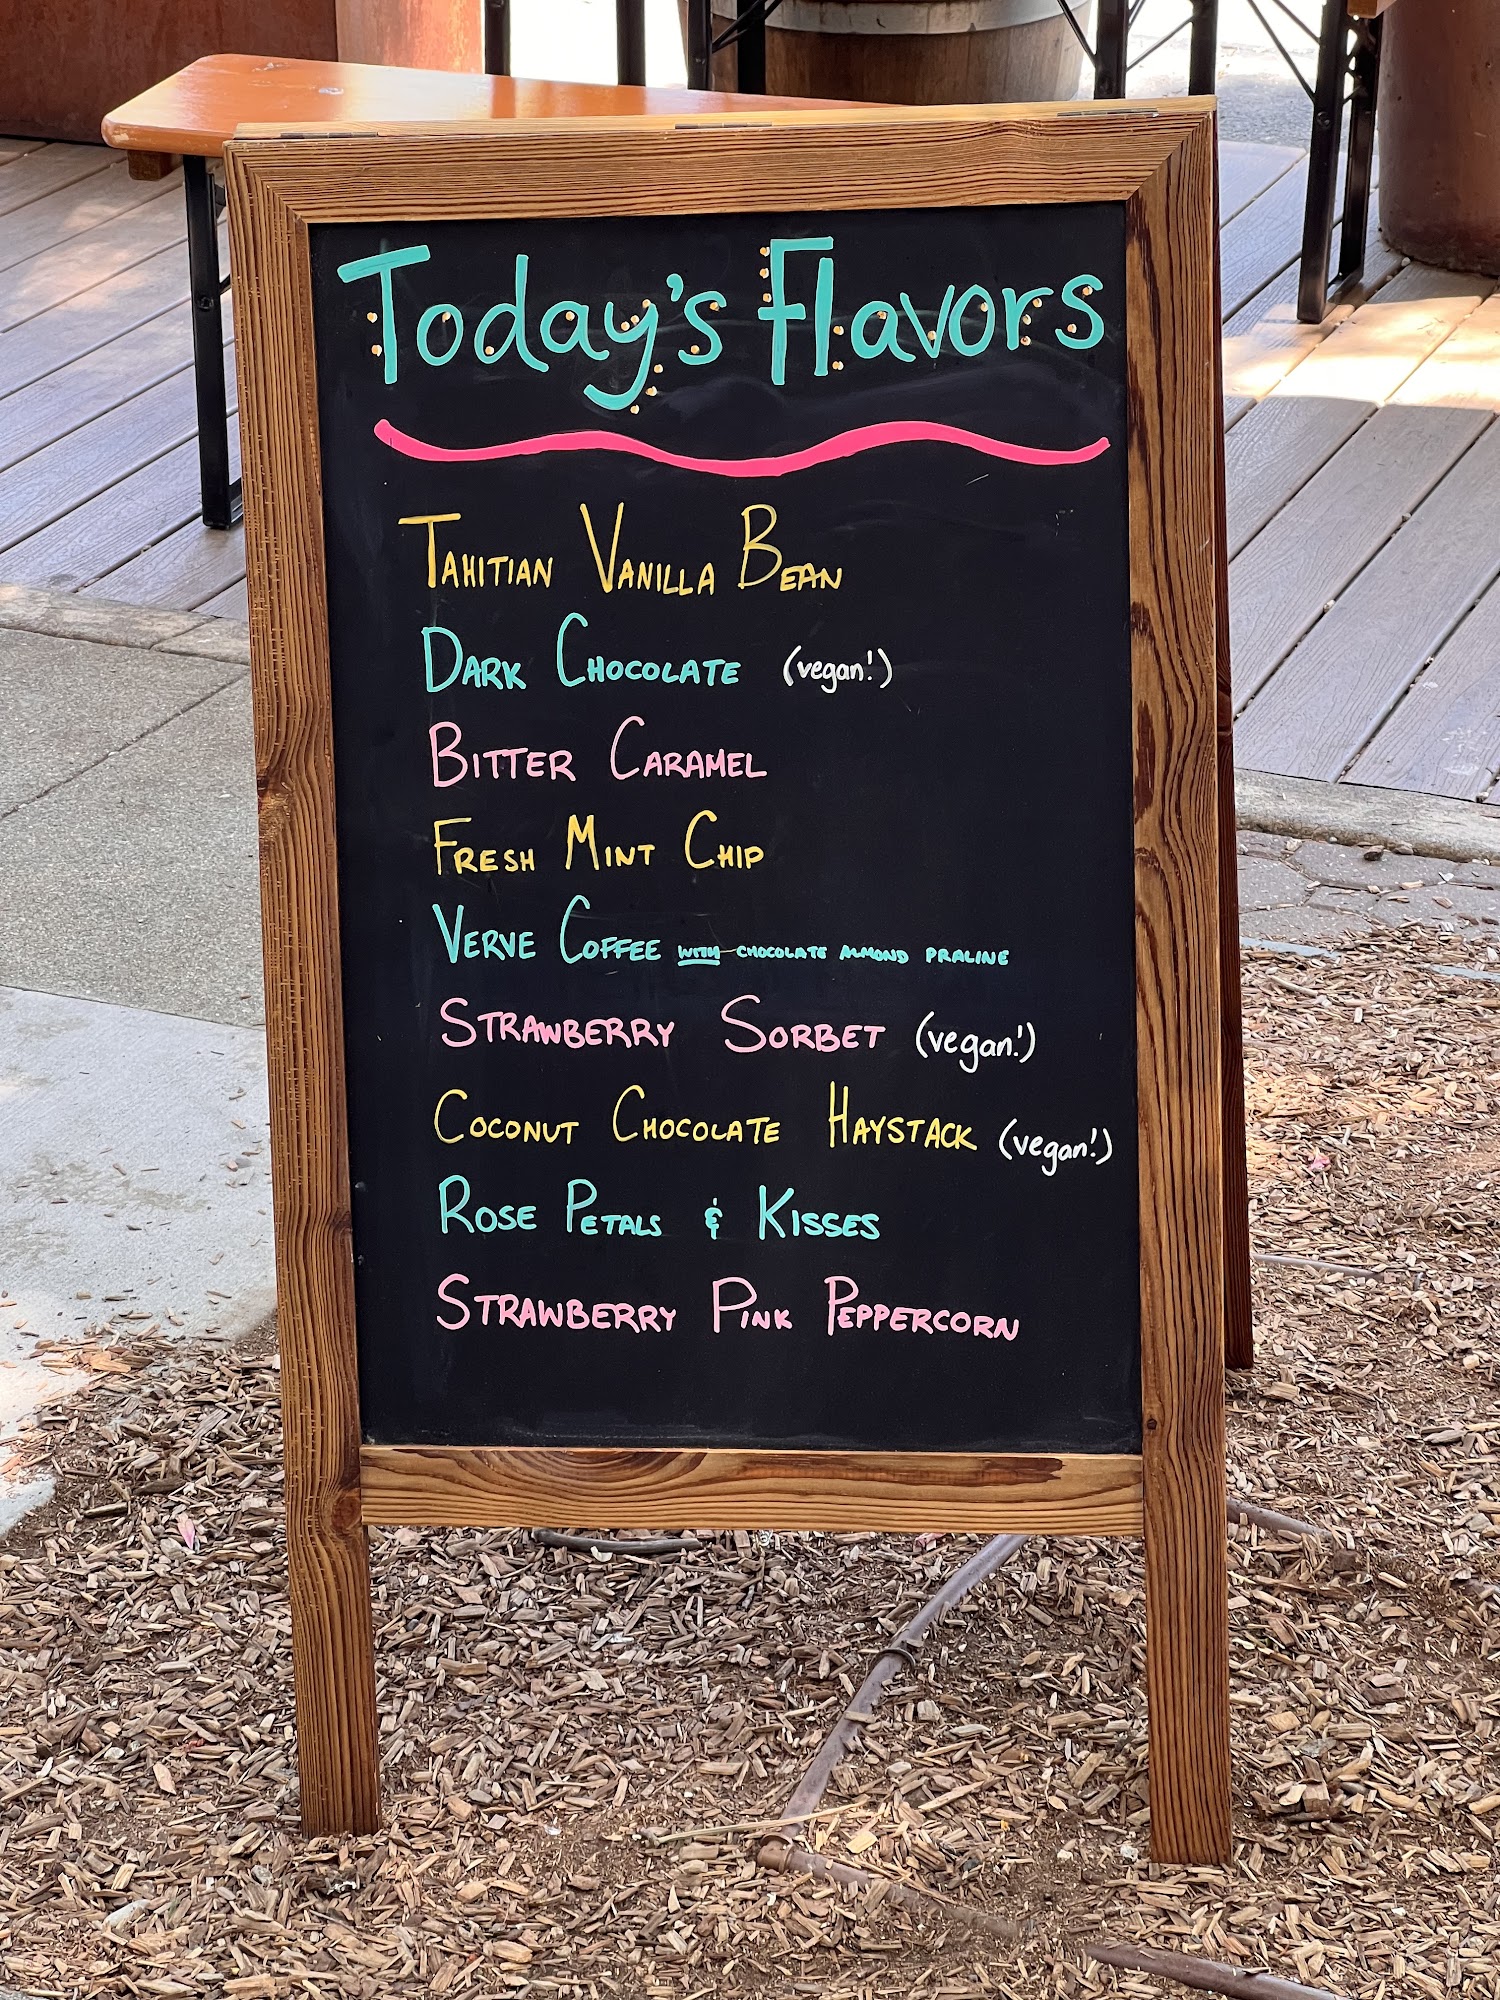 Today's Flavors
TAHITIAN VANILLA BEAN
DARK CHOCOLATE (vegan!)
BITTER CARAMEL
FRESH MINT CHIP
VERVE COFFEE WITH CHOCOLATE ALMOND PRALINE
STRAWBERRY SORBET (vegan!)
COCONUT CHOCOLATE HAYSTACK (vegan!)
ROSE PETALS & KISSES
STRAWBERRY PINK PEPPERCORN